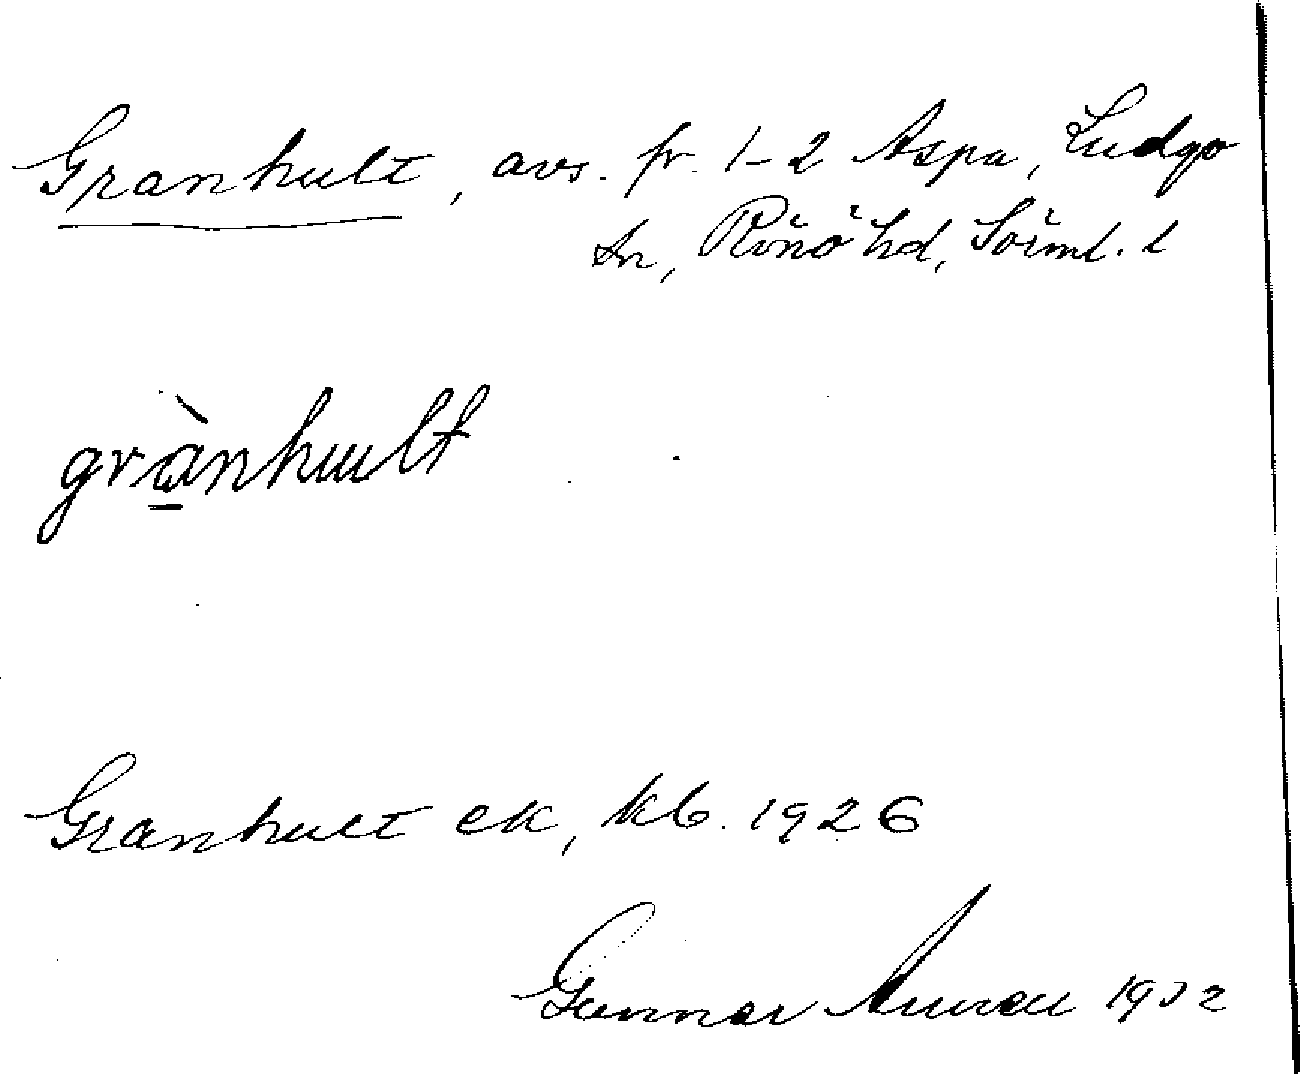 Granhult, avs. fr. 1-2 Aspa, Ludgo
sn, Rönö hd, Sörml. l
grànhult
Granhult ek, kb. 1926
Gunnar 1932